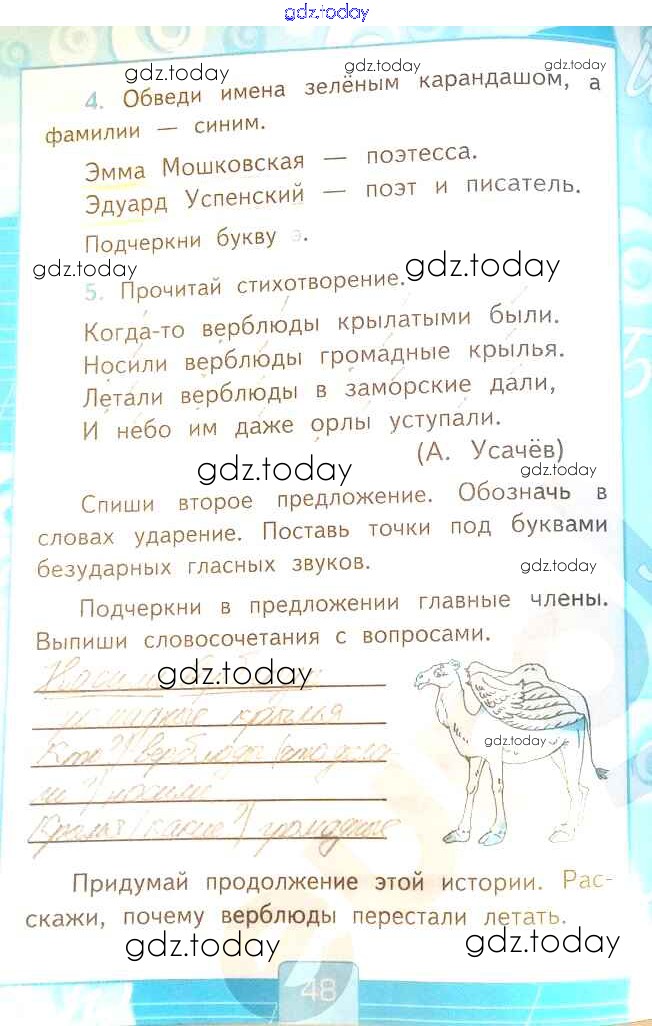 gdz.today
gdz.today
gdz.today
gdz.today
4. Обведи имена зелёным карандашом, а
фамилии — синим.
Эмма Мошковская — поэтесса.
Эдуард Успенский — поэт и писатель.
Подчеркни букву э.
gdz.today
gdz.today
5. Прочитай стихотворение.
Когда-то верблюды крылатыми были.
Носили верблюды громадные крылья.
Летали верблюды в заморские дали,
И небо им даже орлы уступали.
(А. Усачёв)
gdz.today
gdz.today
Спиши второе предложение. Обозначь в
словах ударение. Поставь точки под буквами
безударных гласных звуков.
gdz.today
Подчеркни в предложении главные члены.
Выпиши словосочетания с вопросами.
Носили
gdz.today
громадные крылья
gdz.today
Кто? верблюды (что дела
ли?) носили
(какие?) громадные
Придумай продолжение этой истории. Рас-
скажи, почему верблюды перестали летать.
gdz.today
gdz.today
48